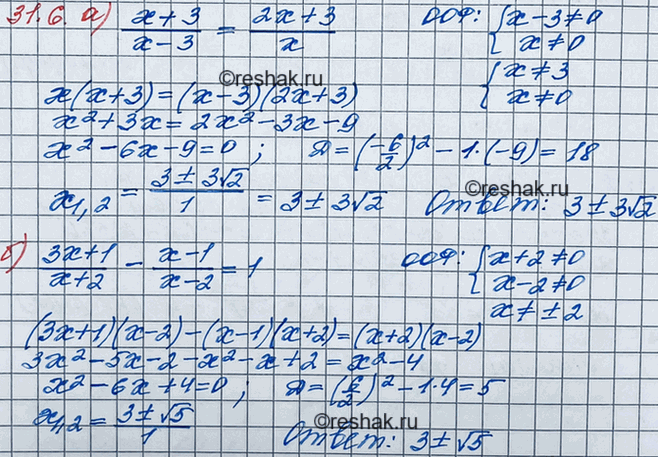 31.6. а) (x+3)/(x-3) = (2x+3)/x ООФ: { x-3≠0
x≠0
{ x≠3
x≠0
©reshak.ru
x(x+3)=(x-3)(2x+3)
x²+3x=2x²-3x-9
x²-6x-9=0; D=(-6/2)²-1·(-9)=18
©reshak.ru
x₁,₂ = (3±3√2)/1 = 3±3√2 Ответ: 3±3√2
б) (3x+1)/(x+2) - (x-1)/(x-2) = 1 ООФ: { x+2≠0
x-2≠0
x≠±2
(3x+1)(x-2)-(x-1)(x+2)=(x+2)(x-2)
3x²-5x-2-x²-x+2=x²-4
x²-6x+4=0; D=(6/2)²-1·4=5
©reshak.ru
x₁,₂ = (3±√5)/1 Ответ: 3±√5